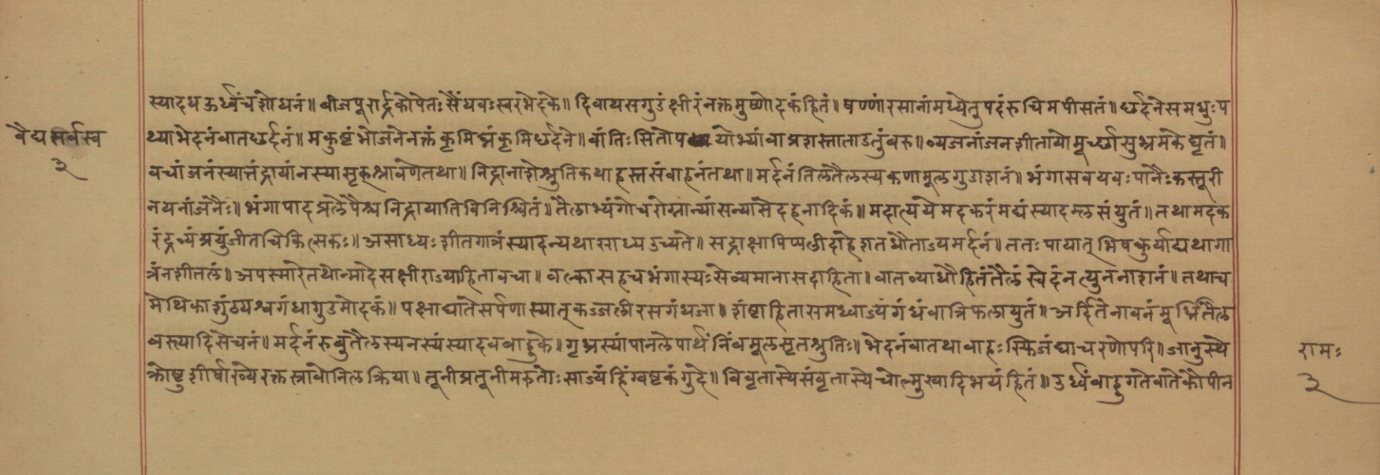 स्यादथ ऊर्ध्वं च शोधनं॥ बीजपूरार्द्रकोपेतः सैंधवः स्वरभेदके॥ दिवाय सगुडं क्षीरं नक्तमुष्णोदकं हितं॥ षण्णां रसानां मध्ये तु पदं रुचिमपीसतं॥ छर्दने समधुः प
वैद्य सर्वस्व
३
थ्या भेदनं वात छर्दनं॥ मकुष्टं भोजने नक्तं कृमिघ्नं कृमि छर्दने॥ वांतिः सितोप योभ्यां वा प्रशस्ता ताऽतुं वरु॥ व्यजनांजन शीतायो मूर्च्छासु भ्रमके घृतं॥
वचांजनं स्यात्तंद्रायां नस्यासृक् श्रावणे तथा॥ निद्रानाशे श्रुतिकथा हस्त संवाहनं तथा॥ मर्दनं तिलतैलस्य कणामूल गुडाशनं॥ भंगासवयवः पानैः कस्तूरी
नयनांजनैः॥ भंगापाद प्रलेपैश्च निद्रायाति विनिश्चितं॥ तैलाभ्यंगो चरोस्नान्यां सन्यासे दहनादिकं॥ मदात्यये मदकरं मद्यं स्यादम्ल संयुतं॥ तथा मदक
रं द्रव्यं प्रयुंजीत चिकित्सकः॥ असाध्यः शीतगात्रं स्यादन्यथा साध्य उच्यते॥ सद्राक्षा पिप्पली दाहे शत धौताज्य मर्दनं॥ ततः पायात् भिषकुर्याद्यथागा
त्रं न शीतलं॥ अपस्मारे तथोन्मादे सक्षीराज्या हिता वचा॥ वल्का सह च भंगास्यः सेव्यमाना सदा हिता॥ वातव्याधौ हितं तैलं स्वेदनं त्युननाशनं॥ तथा च
मेथिका शुंठ्यश्वगंधा गुडमोदकं॥ पक्षाघाते सर्पणा स्यात् कज्जली रसगंधजा॥ शुंठी हिता समध्वाज्यं गंधं वा त्रिफलायुतं॥ अर्दिते नावनं मूर्ध्नि तैल
वस्त्यादि सेचनं॥ मर्दनं रुबु तैलस्य नस्यं स्यादवबाहुके॥ गृध्रस्यां पानले पार्थं निंबमूल सृत श्रुतिः॥ भेदनं वातथा बाहः स्फिजं घा चरणोपरि॥ जानुस्थे
रामः
३
क्रोष्टु शीर्षाख्ये रक्त स्रावोनिल क्रिया॥ तूनी प्रतूनी मरुतोः साज्यं हिंग्वष्टकं गुदे॥ विवृतास्ये संवृतास्ये चोल्मुखादि भयं हितं॥ उर्ध्वं बाहुगते वाते कौपीन